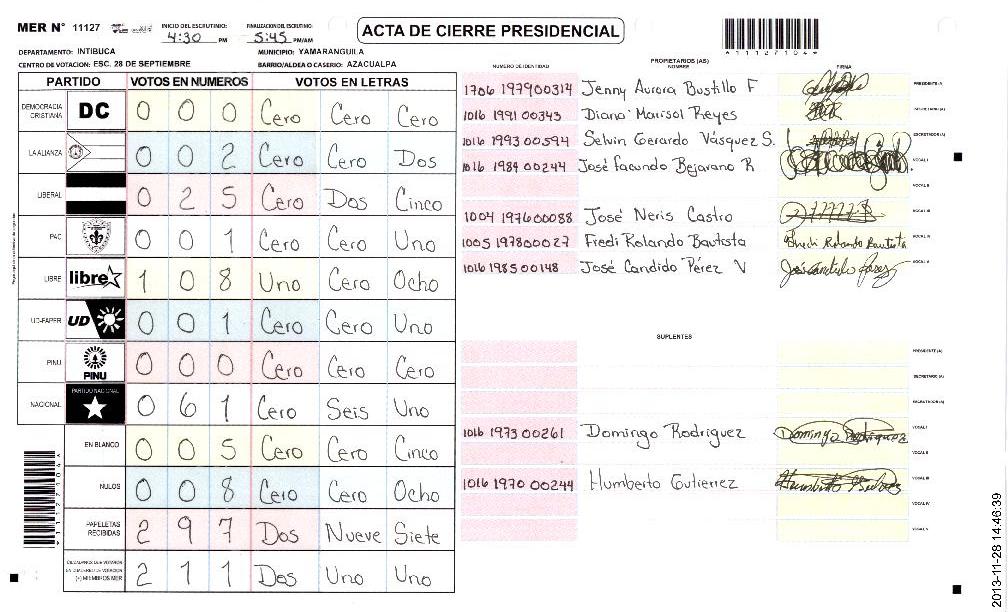 MER N° 11127
INICIO DEL ESCRUTINIO: 4:30 PM
FINALIZACION DEL ESCRUTINIO: 5:45 PM/AM
ACTA DE CIERRE PRESIDENCIAL
*1112710４*
DEPARTAMENTO: INTIBUCA
MUNICIPIO: YAMARANGUILA
CENTRO DE VOTACION: ESC. 28 DE SEPTIEMBRE
BARRIO/ALDEA O CASERIO: AZACUALPA
PARTIDO VOTOS EN NUMEROS VOTOS EN LETRAS
DEMOCRACIA CRISTIANA DC 0 0 0 Cero Cero Cero
LA ALIANZA 0 0 2 Cero Cero Dos
LIBERAL 0 2 5 Cero Dos Cinco
PAC 0 0 1 Cero Cero Uno
LIBRE libre 1 0 8 Uno Cero Ocho
UD-FAPER UD 0 0 1 Cero Cero Uno
PINU PINU 0 0 0 Cero Cero Cero
NACIONAL PARTIDO NACIONAL 0 6 1 Cero Seis Uno
EN BLANCO 0 0 5 Cero Cero Cinco
NULOS 0 0 8 Cero Cero Ocho
PAPELETAS RECIBIDAS 2 9 7 Dos Nueve Siete
CIUDADANOS QUE VOTARON EN CUADERNO DE VOTACION (+) MIEMBROS MER 2 1 1 Dos Uno Uno
PROPIETARIOS (AS)
NUMERO DE IDENTIDAD NOMBRE FIRMA
1706 197900314 Jenny Aurora Bustillo F PRESIDENTE (A)
1016 1991 00343 Diana Marisol Reyes SECRETARIO (A)
1016 1993 00594 Selvin Gerardo Vásquez S. ESCRUTADOR (A)
1016 1984 00244 José Facundo Bejarano R VOCAL I
VOCAL II
1004 197600088 José Neris Castro VOCAL III
1005 197800027 Fredi Rolando Bautista Fredi Rolando Bautista VOCAL IV
1016 198500148 José Candido Pérez V VOCAL V
SUPLENTES
PRESIDENTE (A)
SECRETARIO (A)
ESCRUTADOR (A)
1016 1973 00261 Domingo Rodriguez Domingo Rodriguez VOCAL I
VOCAL II
1016 1970 00244 Humberto Gutierrez VOCAL III
VOCAL IV
VOCAL V
2013-11-28 14:46:39